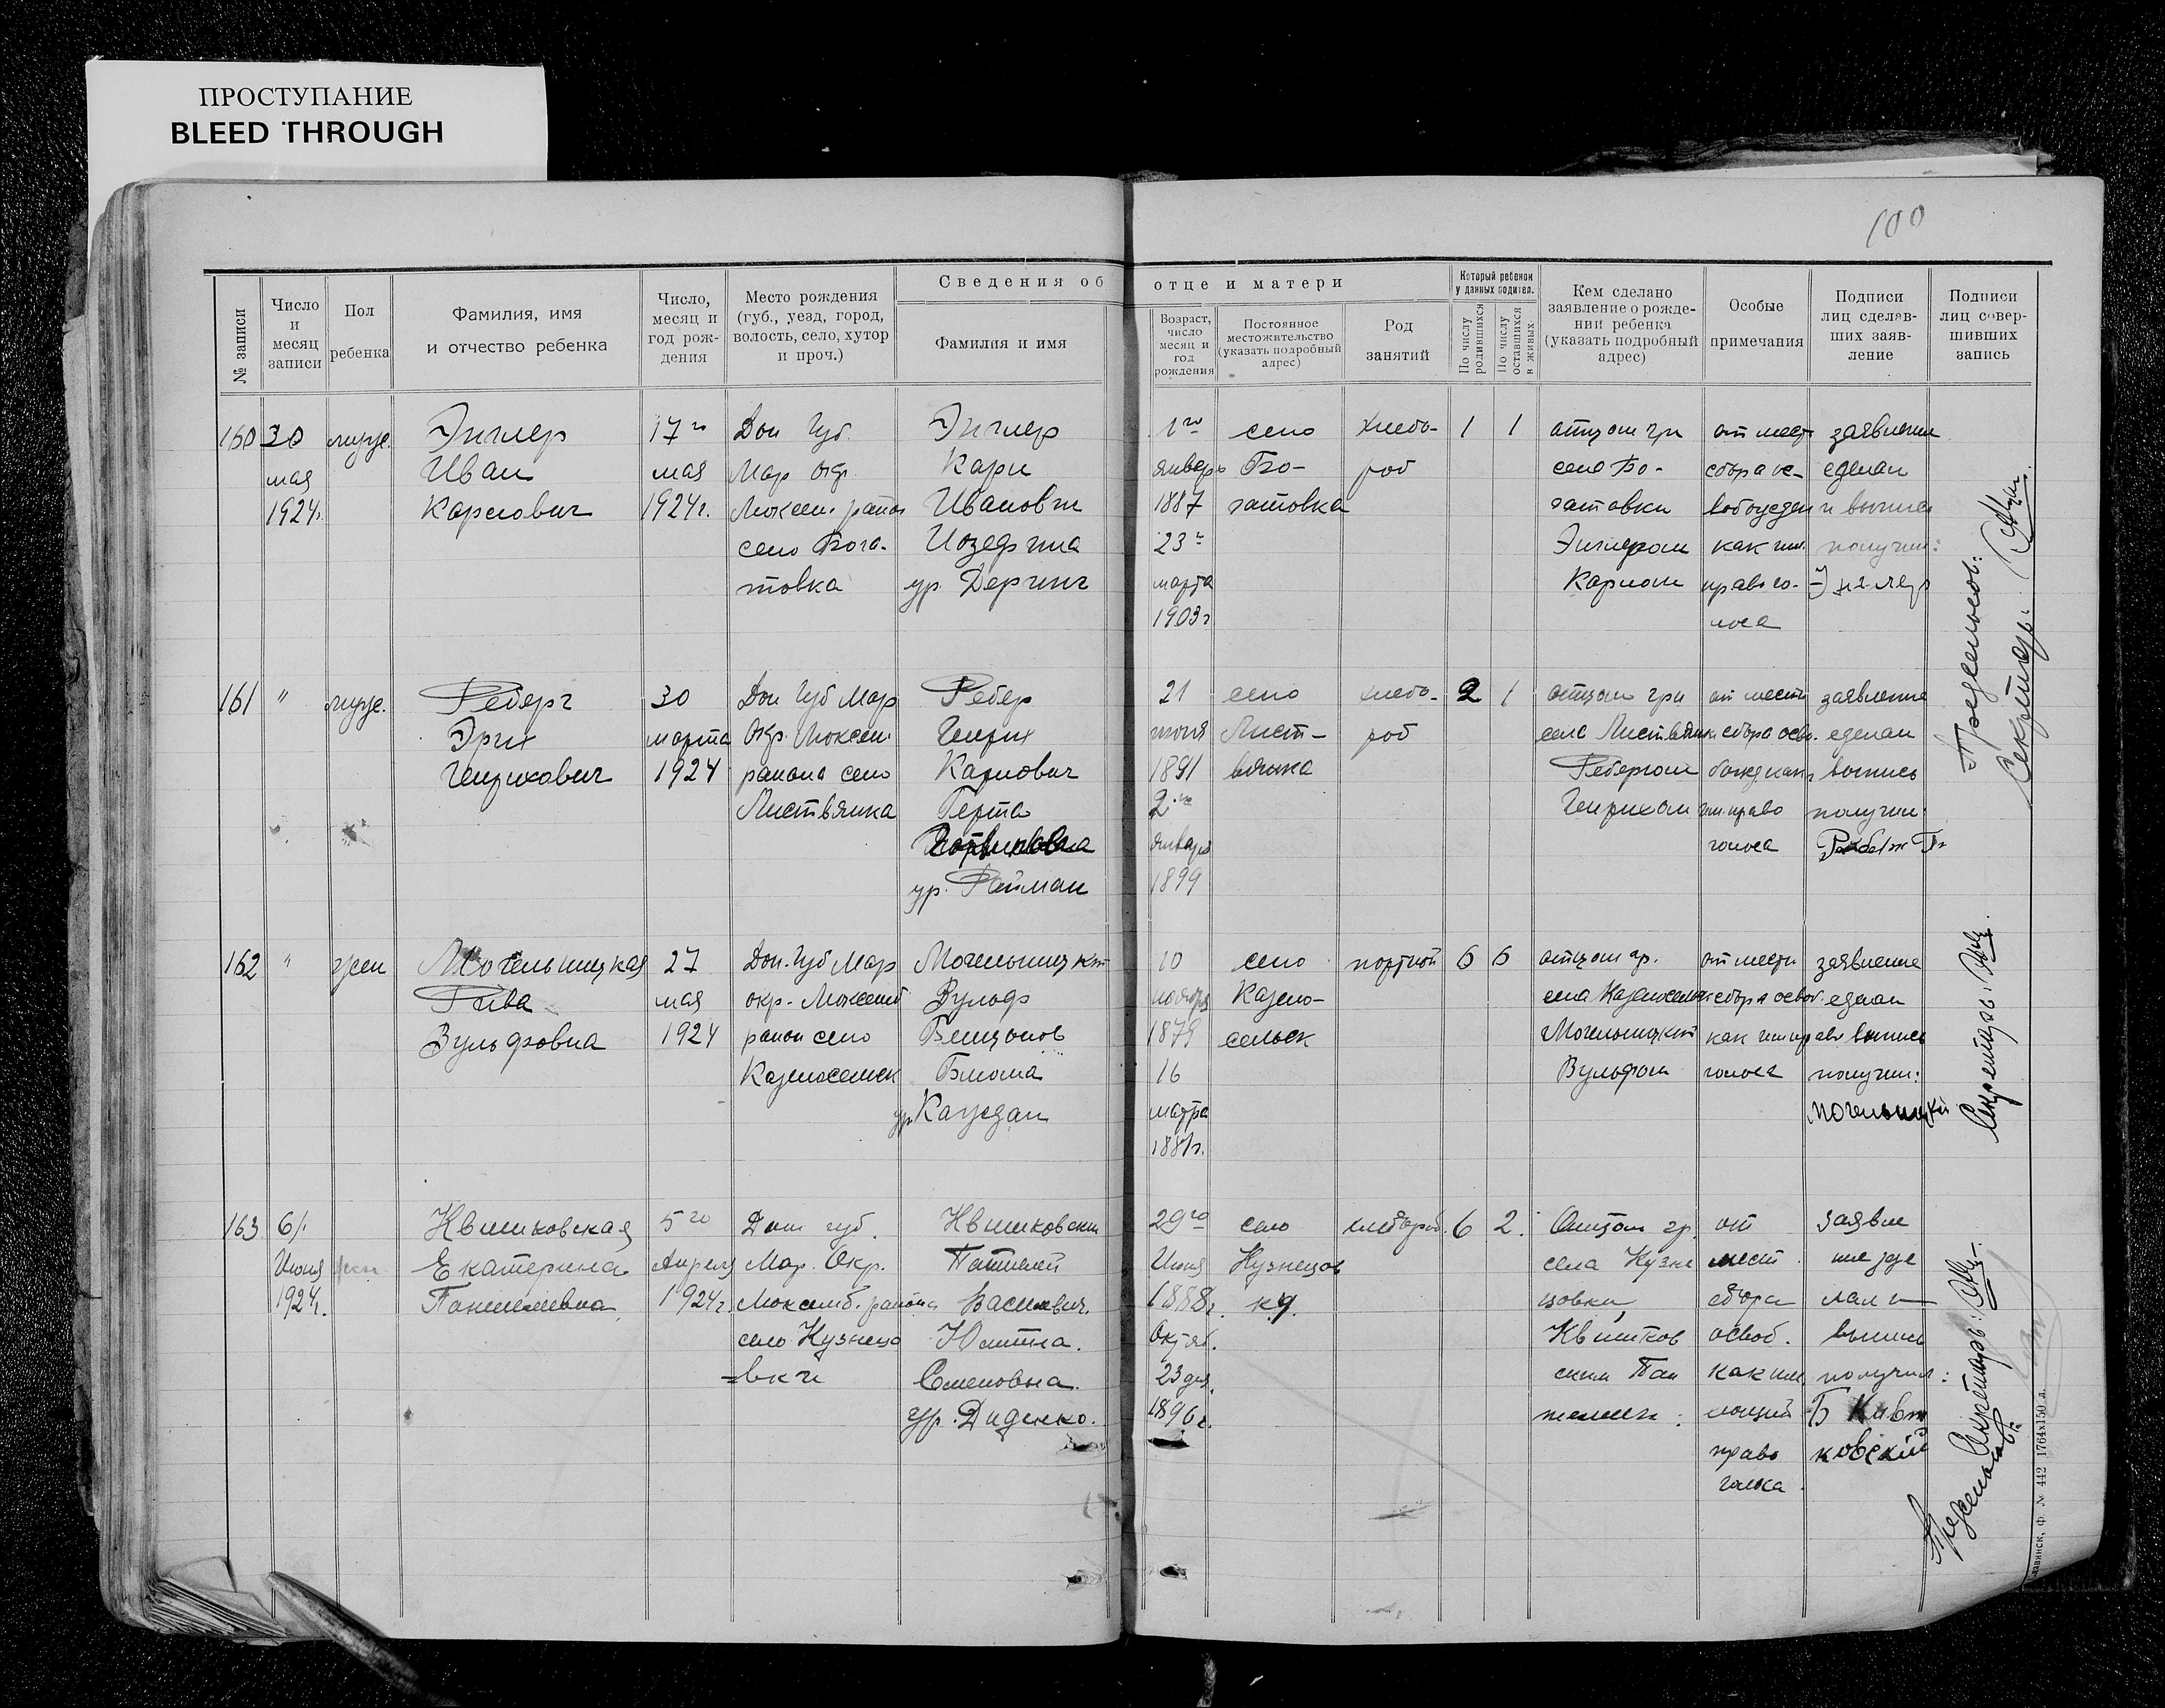 ПРОСТУПАНИЕ
BLEED THROUGH
100
№ записи
Число и месяц записи
Пол ребенка
Фамилия, имя и отчество ребенка
Число, месяц и год рождения
Место рождения (губ., уезд, город, волость, село, хутор и проч.)
Сведения об отце и матери
Фамилия и имя
Возраст, число месяц и год рождения
Постоянное местожительство (указать подробный адрес)
Род занятий
Который ребенок у данных родител.
По числу родившихся
По числу оставшихся в живых
Кем сделано заявление о рождении ребенка (указать подробный адрес)
Особые примечания
Подписи лиц сделавших заявление
Подписи лиц совершивших запись
160
30
мая
1924г.
муж.
Энглер
Иван
Карлович
17го
мая
1924г.
Дон Губ.
Мар Окр.
Люксем. район
село Бога-
товка
Энглер
Карл
Иванович
Иозефина
ур. Деринг
1го
январь
1887
23
марта
1903г
село
Бо-
гатовка
хлебо-
роб
1
1
отцом гр
села Бо-
гатовки
Энглером
Карлом
от мест
сбора ос-
вобожден
как им.
право го-
лоса
заявление
сделал
и выпись
получил:
161
"
муж.
Реберг
Эрих
Генрихович
30
марта
1924
Дон Губ Мар
Окр. Люксем.
района село
Листвянка
Ребер
Генрих
Карлович
Герта
ур. Райман
21
июня
1891
2го
январь
1899
село
Лист-
вянка
хлебо-
роб
2
1
отцом гр
села Листвянки
Ребергом
Генрихом
от местн
сбора осво.
божд как
им. право
голоса
заявление
сделал
выпись
получил:
162
"
жен
Могельницкая
Рива
Вульфовна
27
мая
1924
Дон. Губ Мар
окр. Люксемб
район село
Казеносельск
Могельницкий
Вульф
Бенционов
Блюма
ур. Каждан
10
ноября
1879
16
марта
1881г.
село
Казено-
сельск
портной
6
6
отцом гр.
села Казеносельск
Могельницкий
Вульфом
от местн
сбора освоб.
как им право
голоса
заявление
сделал
выпись
получил:
Могельницкий
163
6/.
Июня
1924г.
жен
Квитковская
Екатерина
Пантелеевна
5го
Апреля
1924г.
Дон губ.
Мар. Окр.
Люксемб. района
село Кузнецо
=вка
Квитковский
Пантелей
Васильевич.
Юлия.
Семеновна.
ур. Диденко.
29го
Июля
1888г.
Октяб.
23 дня
1896г.
село
Кузнецов
ка.
хлебороб.
6
2.
Отцом гр.
села Кузне
цовки,
Квитков
ским Пан
телеем:
от
мест.
сбора
освоб.
как им
еющий
право
голоса.
заявле
ние зде
лал и
выпись
получил:
ковский
Секретарь:
Секретарь:
Секретарь:
Славянск, Ф. № 442 1764х150 л.